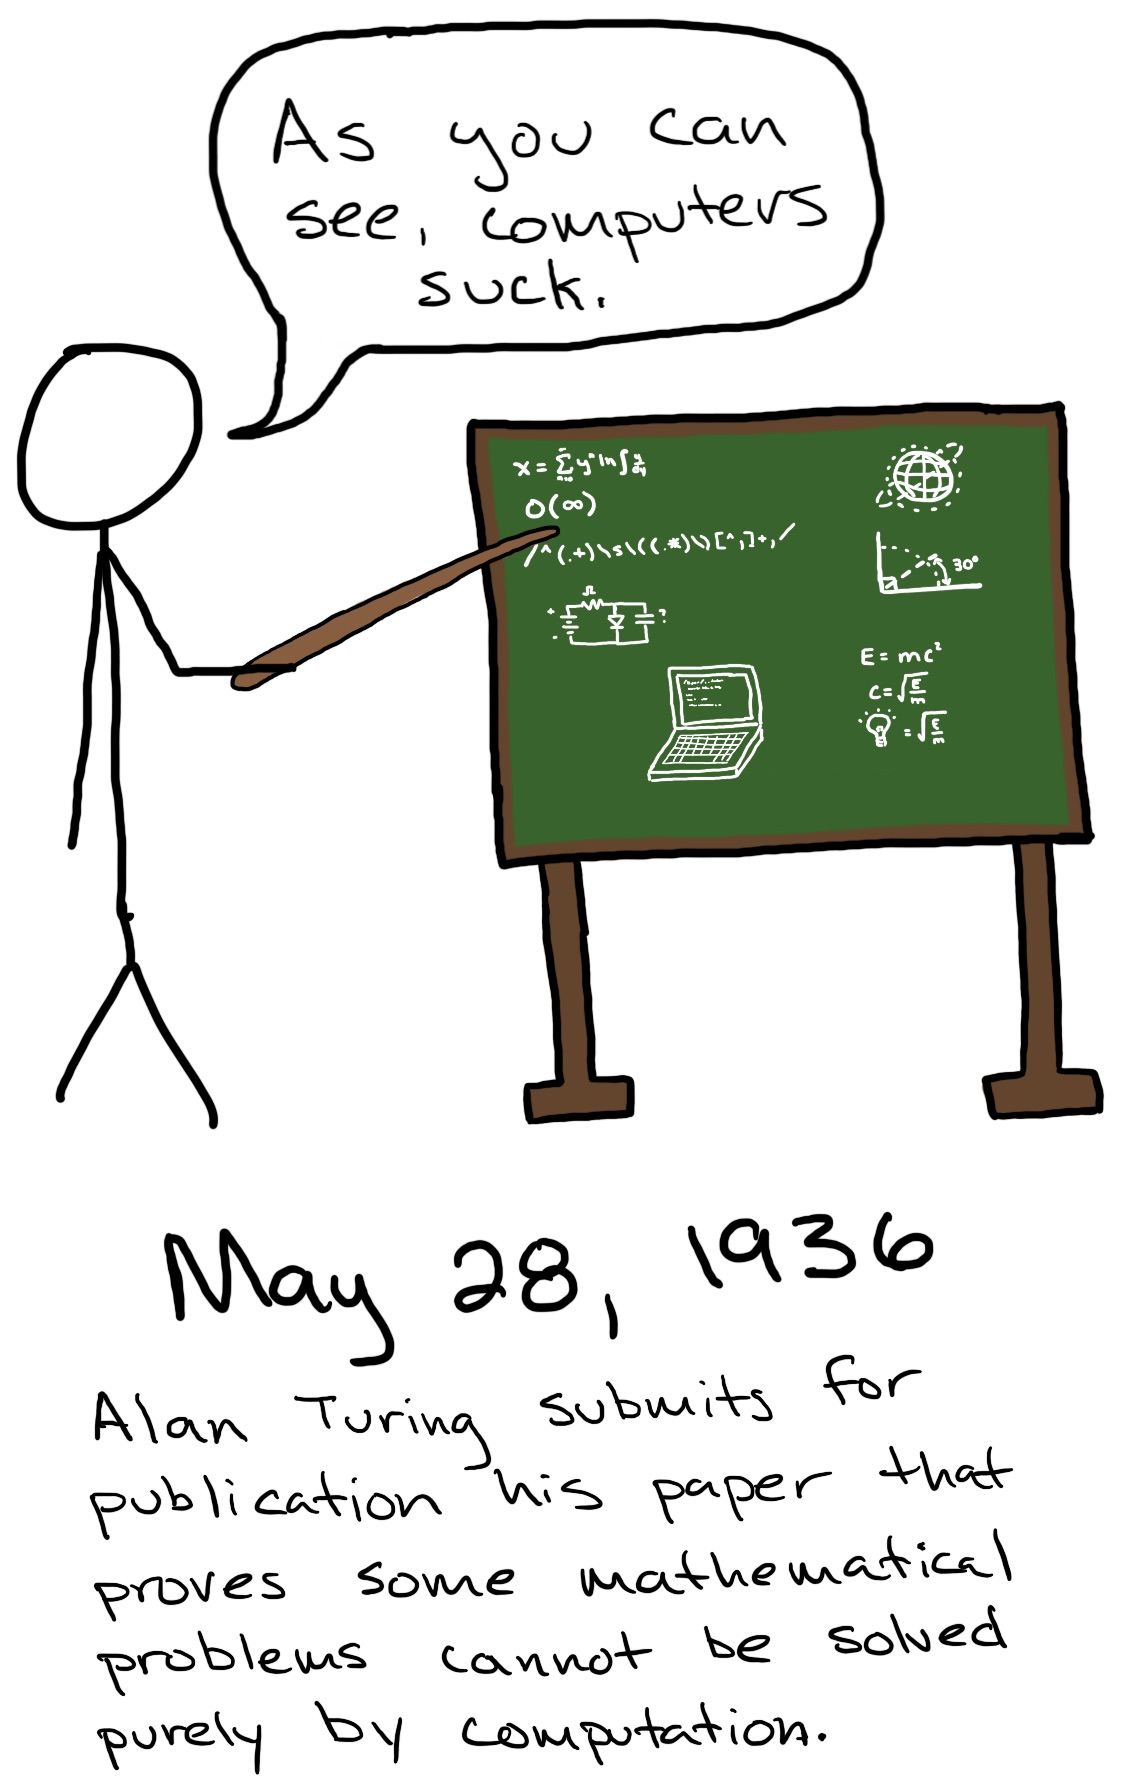 As you can
see, computers
suck.
x = ∑ yⁿ ln ∫
O(∞)
/^(.+)\s\((.*)\)[^,]+,/
+
-
?
30°
E = mc²
c = √E/m
= √E/m
May 28, 1936
Alan Turing submits for
publication his paper that
proves some mathematical
problems cannot be solved
purely by computation.